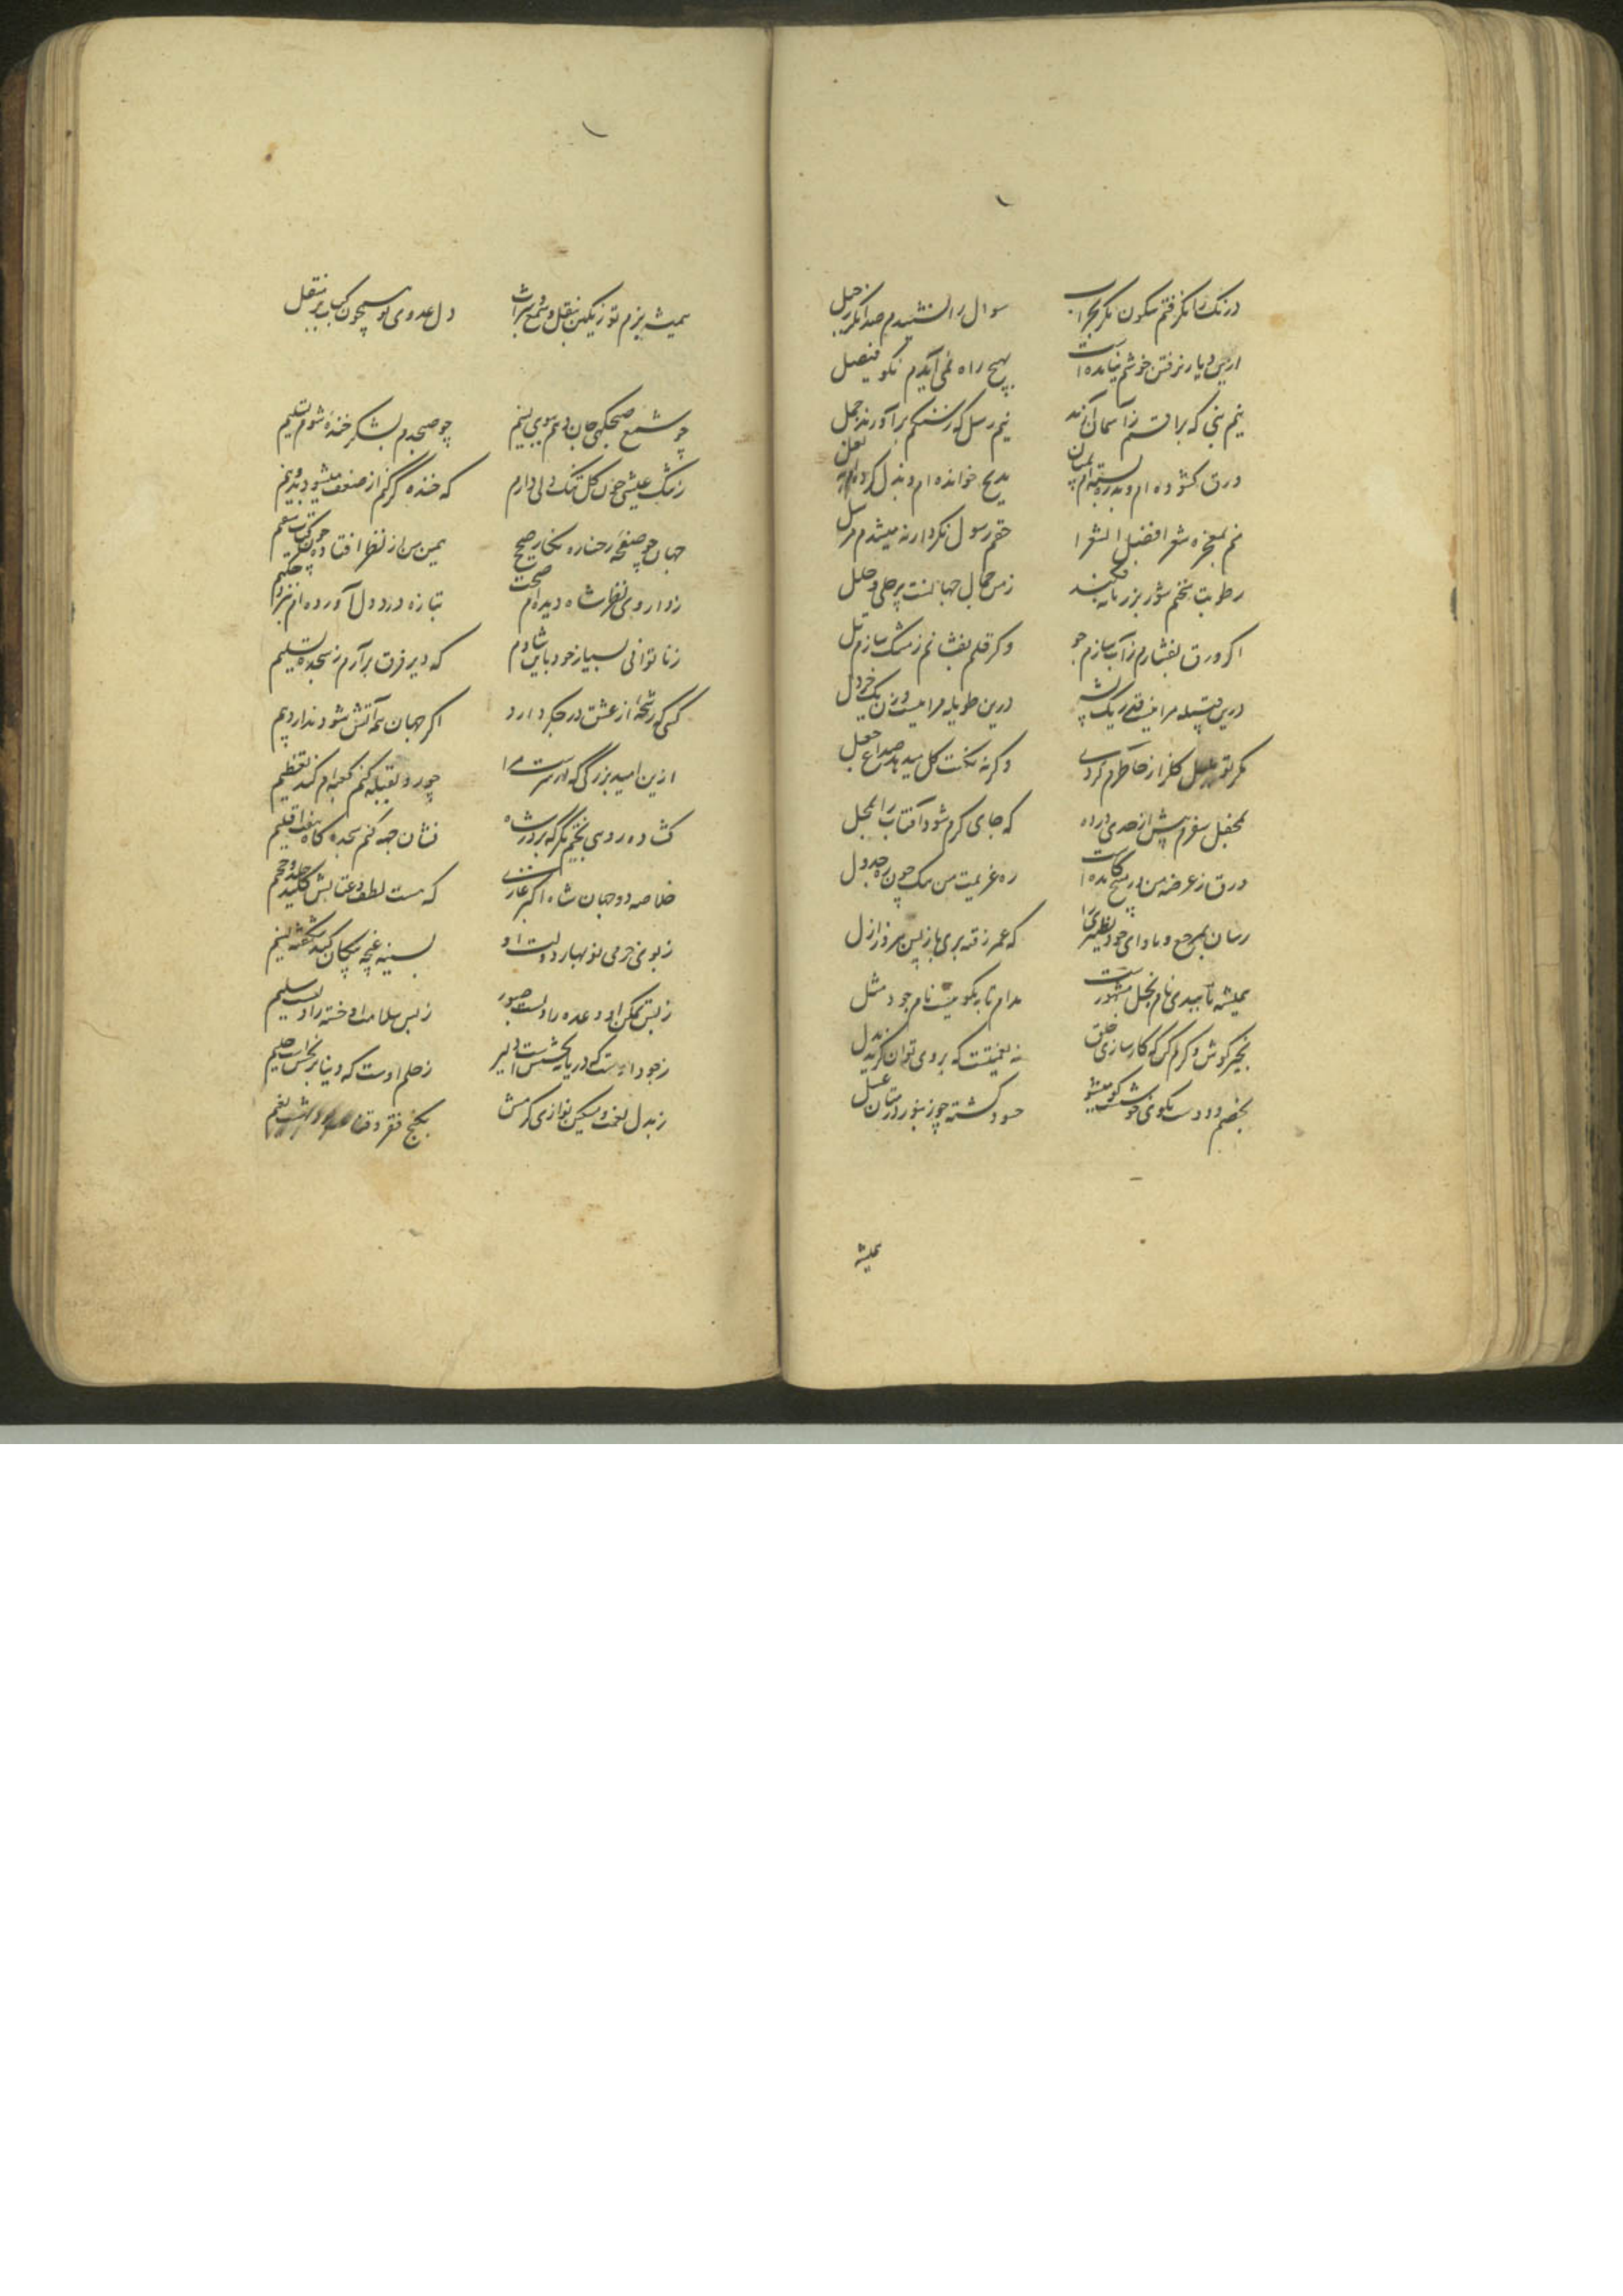 درنگ را نگرفتم سکون مگر بحراب سوال را نشنیدم صدا مگر ز جبل
ازین دیار نرفتن خوشم نیامده است بهیچ راه نمی‌آیدم نکو فیصل
نیم نبی که براقم ز آسمان آرند نیم رسل که ز سنگم برآورند جمل
ورق کشوده‌ام و بدره بسته‌ام بمیان مدیح خوانده‌ام و بذل کرده‌ام
منم بمعجزه شعر افضل الشعرا حقم رسول نکرد ارنه میشدم مرسل
رطوبت سخنم شور بزر نامیه شد زمن جمال جهانست پر حلی و حلل
اگر ورق بفشارم ز آب سازم جو وگر قلم بفشانم ز مشک سازم تل
درین قبیله مرا نیست قدر یک پشه درین طویله مرا نیست وزن یک خردل
مگر تو بلبل گلزار خاطرم کردی وگرنه نکهت گل میدهد صداع جعل
بمحفل سفرم پیش از حدی در راه که جای گرم شود آفتاب را بحمل
ورق ز عرضه من در شکنجه آمده است ره عزیمت من سکت چون ره جدول
رسان بمرجع و ماوای خود نظیری را که عمر رفته بری باز پس بروز ازل
همیشه تا ببدی نام بخل مشهورست مدام تا بنکوییست نام جود مثل
بخیر کوش و کرم کن که کارسازی خلق نه نعمتیست که بروی توان گزید بدل
بخصم و دوست نکویی خوشست کو میشو حسود کشته چو زنبور در میان عسل
همیشه
همیشه بزم تو رنگین بنقل و شمع و شراب دل عدوی تو همچون کباب بر منقل
چو شمع صبحگهی جان دهم ببوی نسیم چو صبحدم بشکر خنده شوم تسلیم
ز تنگ عیشی چون گل تنک دلی دارم که خنده گر کنم از ضعف میشود بدو نیم
جهان چو صفحه رخساره نگار صحیح همین من از نظر افتاده چون کتاب سقیم
ز داروی نظر شاه دیده‌ام صحت بتازه درد دل آورده‌ام بنزد حکیم
ز ناتوانی بسیار خود باین شادم که دیر فرق برآرم ز سجده تسلیم
کسی که رشحه از عشق در جگر دارد اگر جهان همه آتش شود ندارد بیم
ازین امید بزرگی که از تست مرا چو رو بقبله کنم کعبه‌ام کند تعظیم
گشاده روی بختم مگر که بر در شاه نشان جبهه کنم سجده گاه هفت اقلیم
خلاصه دو جهان شاه اکبر غازی که هست لطف و عتابش کلید خلد و جحیم
ز بوی خرمی نوبهار دولت او بسینه غنچه پیکان کند شکفته نسیم
ز بس تمکن او وعده را دلست صبور ز بس سلامت او خسته را دلست سلیم
ز جود اوست که دریا به بخشش است دلیر ز حلم اوست که دنیا بر نجس است حلیم
ز بذل نعمت و مسکین نوازی کرمش بکنج فقر و قناعت نعیم